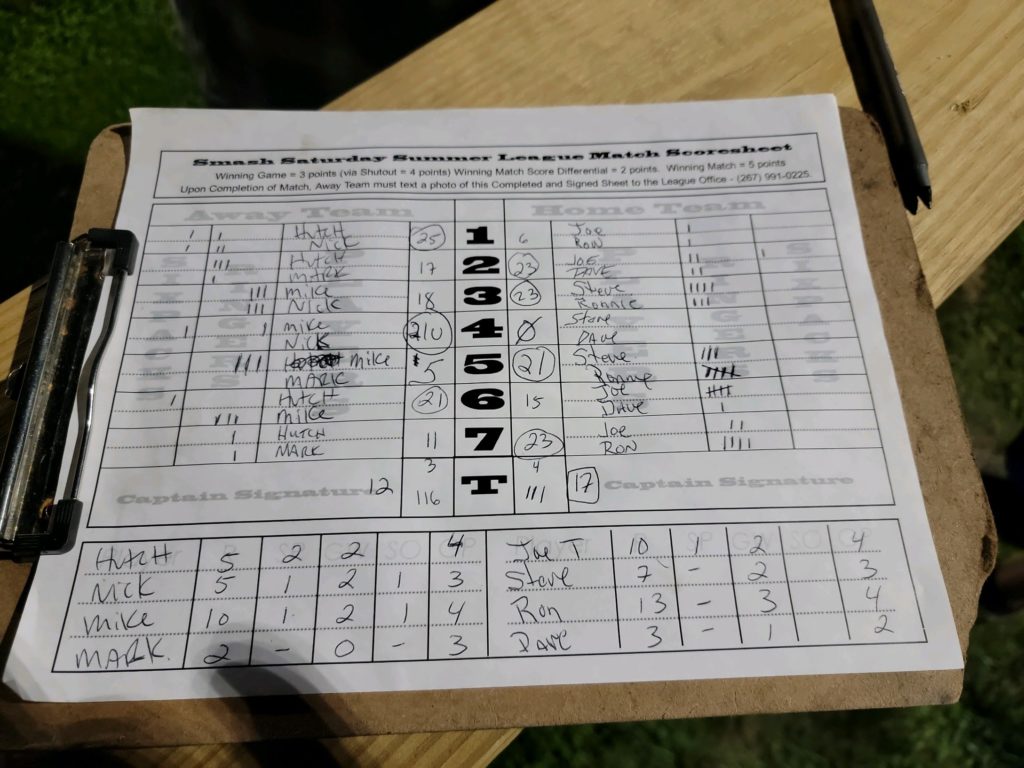 Smash Saturday Summer League Match Scoresheet
Winning Game = 3 points (via Shutout = 4 points) Winning Match Score Differential = 2 points. Winning Match = 5 points
Upon Completion of Match, Away Team must text a photo of this Completed and Signed Sheet to the League Office - (267) 991-0225.
Away Team Home Team
HUTCH 25 1 6 Joe
NICK RON
HUTCH 17 2 23 JOE
MARK DAVE
Mike 18 3 23 Steve
NICK Ronnie
Mike 4 Ø Steve
NICK DAVE
Mike 5 5 21 Steve
MARK Ronnie
HUTCH 21 6 15 Joe
Mike DAVE
HUTCH 11 7 23 Joe
MARK RON
3 4
Captain Signature 12 116 T 111 17 Captain Signature
HUTCH 5 2 2 4 Joe T 10 1 2 4
NICK 5 1 2 1 3 Steve 7 - 2 3
Mike 10 1 2 1 4 Ron 13 - 3 4
MARK. 2 - 0 - 3 DAVE 3 - 1 2